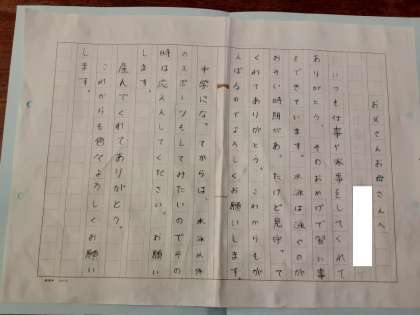 お父さんお母さんへ
いつも仕事や家事をしてくれて
ありがとう。そのおかげで習い事
もできています。水泳は泳ぐのが
おそい時期があったけど見守って
くれてありがとう。これからもが
んばるのでよろしくお願いします。
中学になってからは、水泳以外
のスポーツもしてみたいのでその
時は応えんしてください。お願い
します。
産んでくれてありがとう。
これからも宜しくお願い
します。